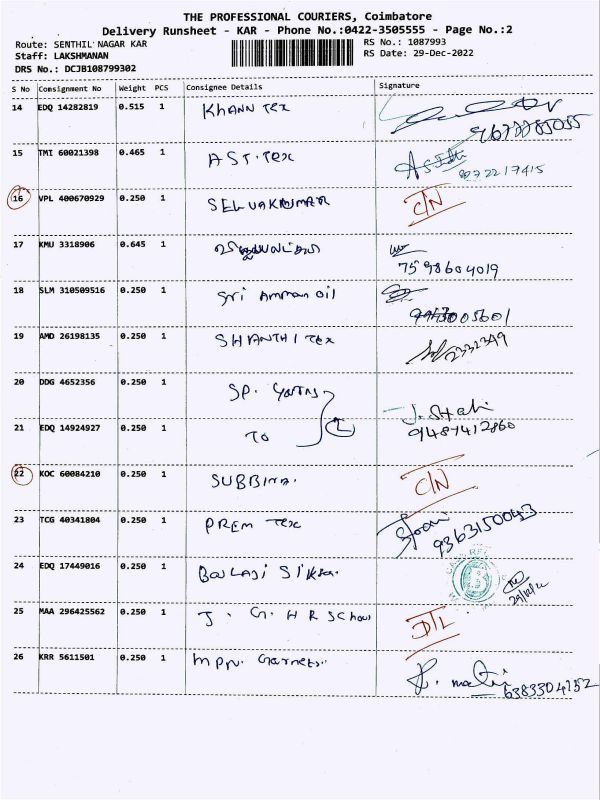 THE PROFESSIONAL COURIERS, Coimbatore
Delivery Runsheet - KAR - Phone No.:0422-3505555 - Page No.:2
Route: SENTHIL NAGAR KAR RS No.: 1087993
Staff: LAKSHMANAN RS Date: 29-Dec-2022
DRS No.: DCJB108799302
S No Consignment No Weight PCS Consignee Details Signature
14 EDQ 14282819 0.515 1 KHANN TEX
15 TMI 60021398 0.465 1 AST.TEX
9272217415
16 VPL 400670929 0.250 1 SELVAKUMAR C/N
17 KMU 3318906 0.645 1
7598604019
18 SLM 310509516 0.250 1 Sri Amman oil
19 AMD 26198135 0.250 1 SHANTHI TEX 2332349
20 DDG 4652356 0.250 1 SP. Yarns
21 EDQ 14924927 0.250 1 TO 2
9487412860
22 KOC 60084210 0.250 1 SUBBINA. C/N
23 TCG 40341804 0.250 1 PREM TEX
9363150043
24 EDQ 17449016 0.250 1 BALAJI
25 MAA 296425562 0.250 1 J. G. H R School D/L
26 KRR 5611501 0.250 1 MPN Garnets.
6383304152